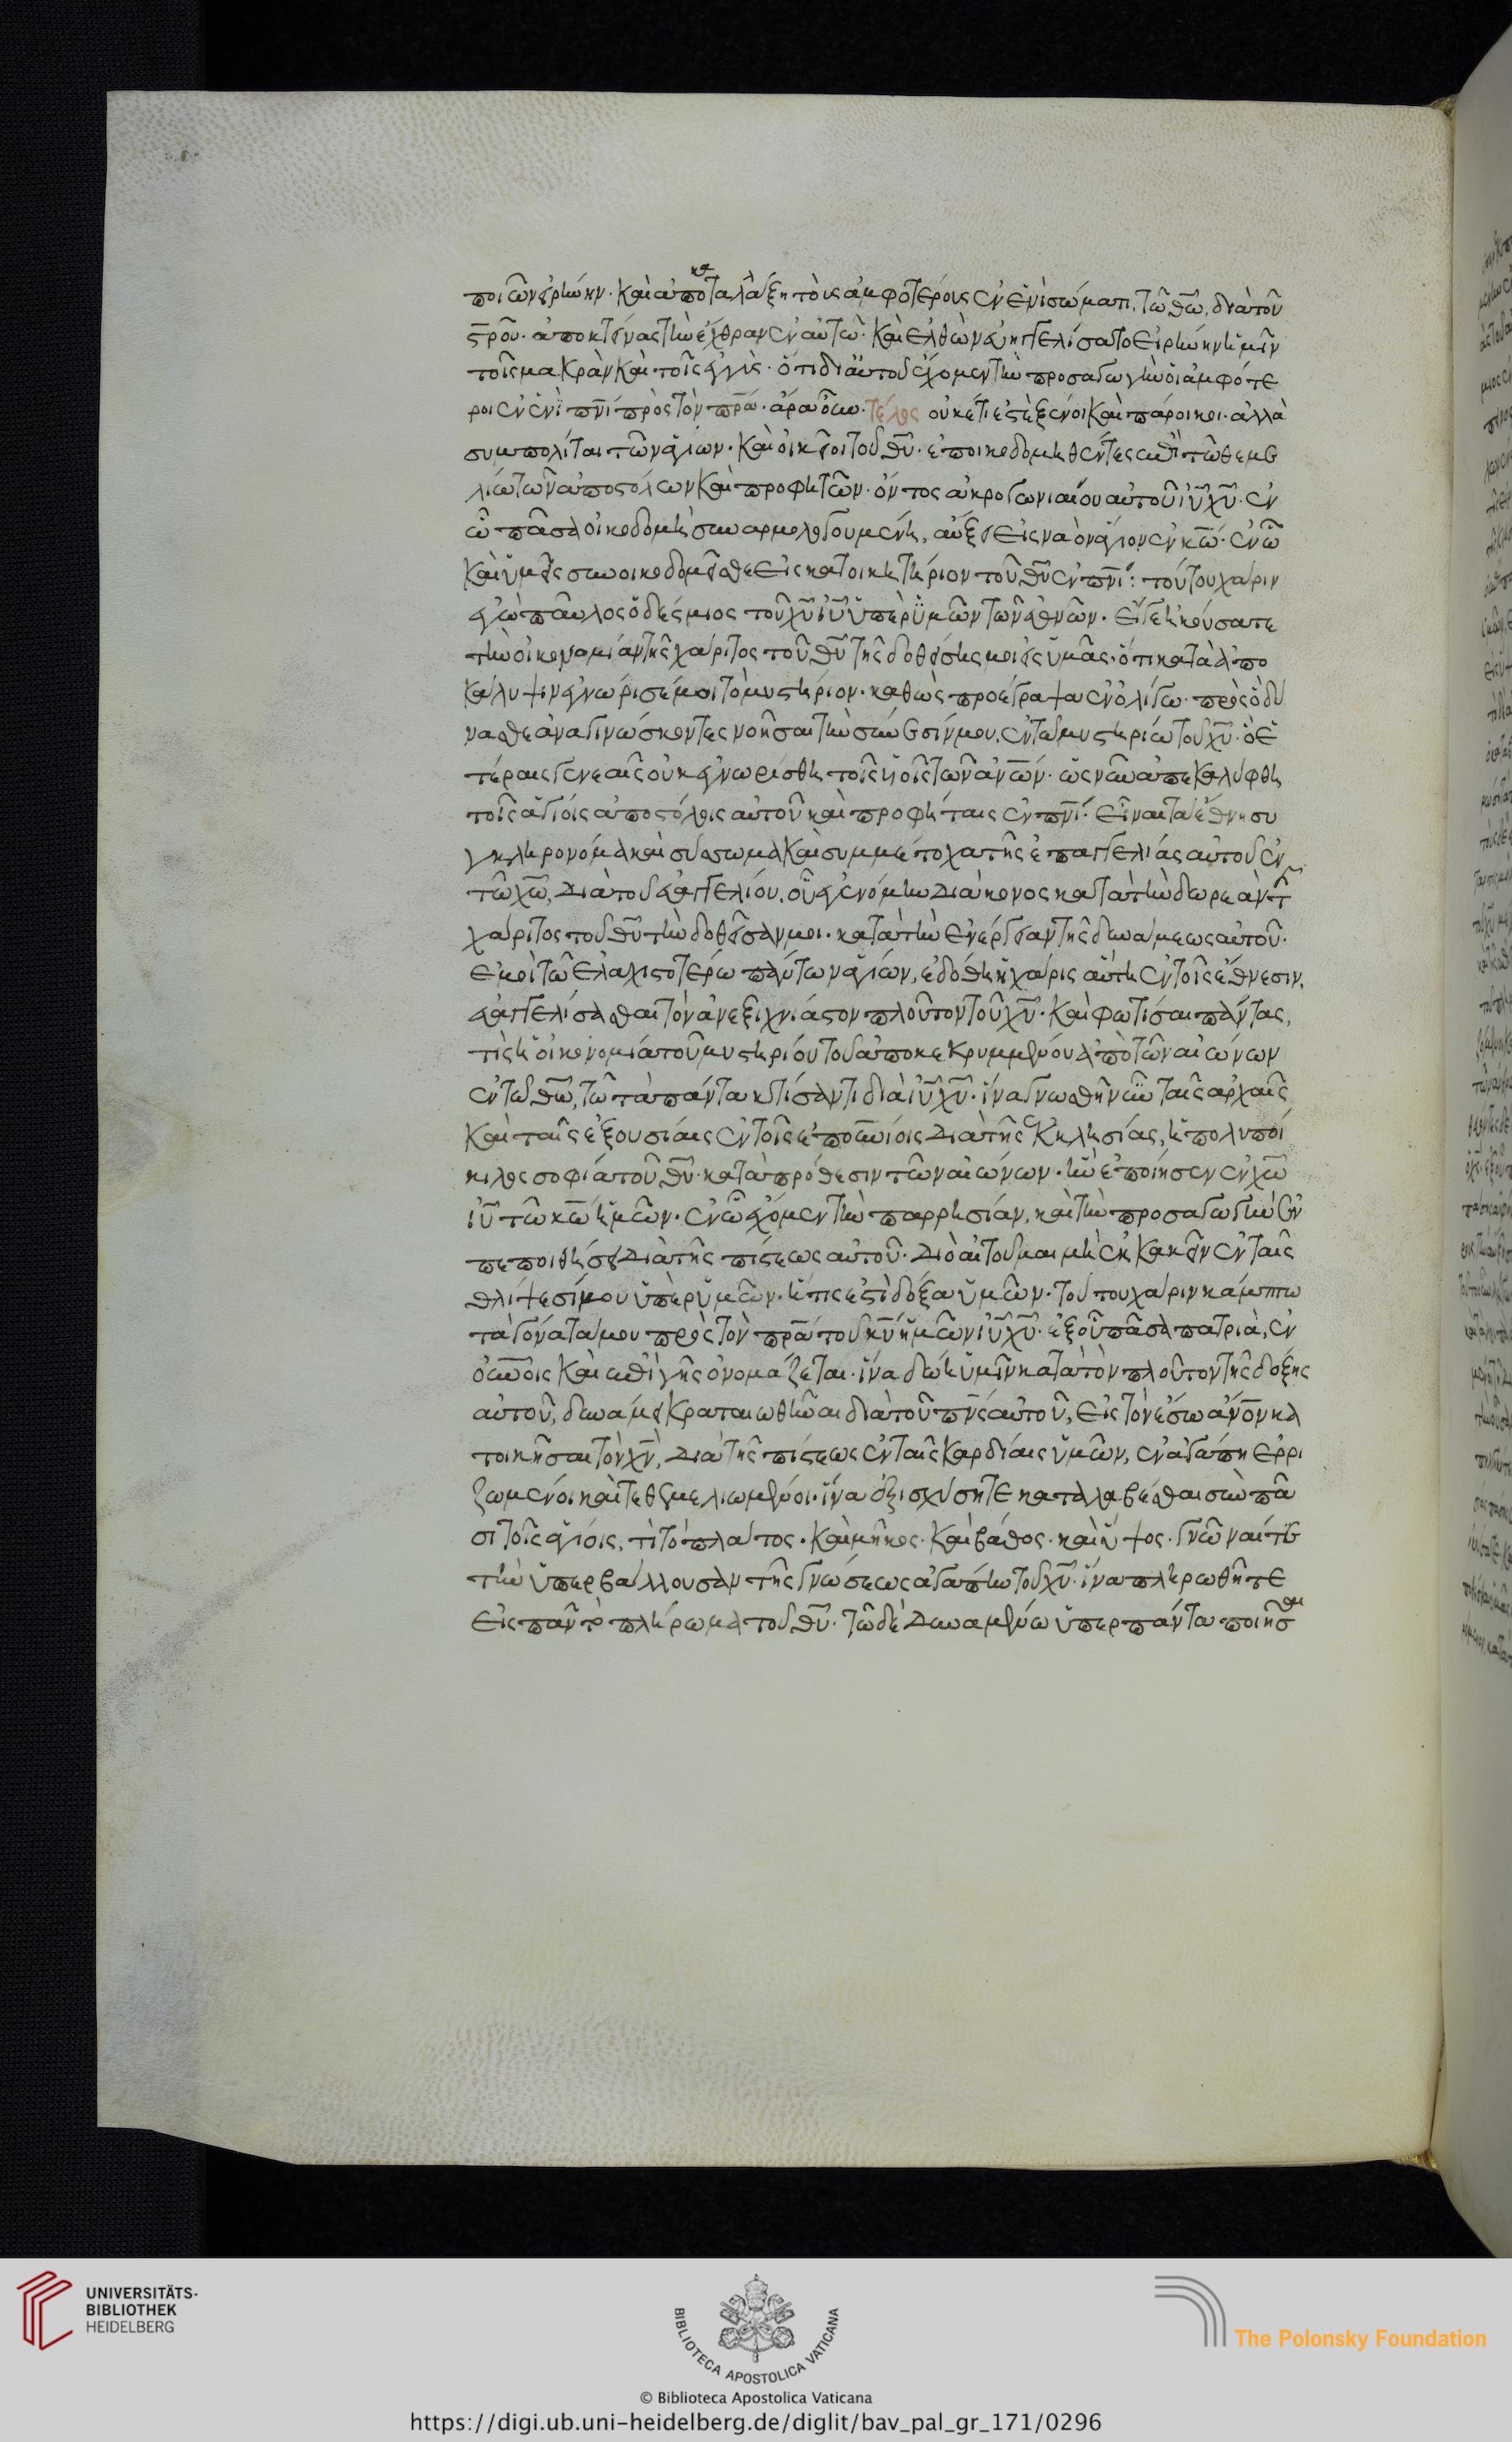 ποιῶν εἰρήνην· καὶ ἀποκαταλάξη τοὺς ἀμφοτέρους ἐν ἑνὶ σώματι, τῶ θ̅ω̅, διὰ τοῦ
σ̅ρ̅οῦ· ἀποκτείνας τὴν ἔχθραν ἐν αὐτῶ· καὶ ἐλθὼν εὐηγγελίσατο εἰρήνην ἡμῖν
τοῖς μακρὰν καὶ τοῖς ἐγγὺς· ὅτι δι αὐτοῦ ἔχομεν τὴν προσαγωγὴν οἱ ἀμφότε
ροι ἐν ἑνὶ π̅ν̅ι̅ πρὸς τὸν π̅ρ̅α̅· ἄρα οὖν· τέλος οὐκέτι ἐστὲ ξένοι καὶ πάροικοι· ἀλλὰ
συμπολίται τῶν ἁγίων· καὶ οἰκεῖοι τοῦ θ̅υ̅· ἐποικοδομηθέντες ἐπὶ τῶ θεμε
λίω τῶν ἀποστόλων καὶ προφητῶν· ὄντος ἀκρογωνιαίου αὐτοῦ ι̅υ̅ χ̅υ̅· ἐν
ὧ πᾶσα οἰκοδομὴ συναρμολογουμένη, αὔξει εἰς ναὸν ἅγιον ἐν κ̅ω̅· ἐν ὧ
καὶ ὑμεῖς συνοικοδομεῖσθε εἰς κατοικητήριον τοῦ θ̅υ̅ ἐν π̅ν̅ι̅: τούτου χάριν
ἐγὼ παῦλος ὁ δέσμιος τοῦ χ̅υ̅ ι̅υ̅ ὑπὲρ ὑμῶν τῶν ἐθνῶν· εἴγε ἠκούσατε
τὴν οἰκονομίαν τῆς χάριτος τοῦ θ̅υ̅ τῆς δοθείσης μοι εἰς ὑμᾶς· ὅτι κατὰ ἀπο
κάλυψιν ἐγνώρισέ μοι τὸ μυστήριον· καθὼς προέγραψα ἐν ὀλίγω· πρὸς ὃ δύ
νασθε ἀναγινώσκοντες νοῆσαι τὴν σύνεσίν μου, ἐν τῶ μυστηρίω τοῦ χ̅υ̅· ὃ ἑ
τέραις γενεαῖς οὐκ ἐγνωρίσθη τοῖς υἱοῖς τῶν ἀ̅ν̅ω̅ν̅· ὡς νῦν ἀπεκαλύφθη
τοῖς ἁγίοις ἀποστόλοις αὐτοῦ καὶ προφήταις ἐν π̅ν̅ι̅· εἶναι τὰ ἔθνη συ
γκληρονόμα καὶ σύσσωμα καὶ συμμέτοχα τῆς ἐπαγγελίας αὐτοῦ ἐν
τῶ χ̅ω̅, διὰ τοῦ εὐαγγελίου, οὗ ἐγενόμην διάκονος κατὰ τὴν δωρεὰν τῆς
χάριτος τοῦ θ̅υ̅ τὴν δοθεῖσάν μοι· κατὰ τὴν ἐνέργειαν τῆς δυνάμεως αὐτοῦ·
ἐμοὶ τῶ ἐλαχιστοτέρω πάντων ἁγίων, ἐδόθη ἡ χάρις αὕτη ἐν τοῖς ἔθνεσιν,
εὐαγγελίσασθαι τὸν ἀνεξιχνίαστον πλοῦτον τοῦ χ̅υ̅· καὶ φωτίσαι πάντας,
τίς ἡ οἰκονομία τοῦ μυστηρίου τοῦ ἀποκεκρυμμένου ἀπὸ τῶν αἰώνων
ἐν τῶ θ̅ω̅, τῶ τὰ πάντα κτίσαντι διὰ ι̅υ̅ χ̅υ̅· ἵνα γνωσθῆ νῦν ταῖς ἀρχαῖς
καὶ ταῖς ἐξουσίαις ἐν τοῖς ἐπο̅υ̅ν̅ίοις διὰ τῆς ἐκκλησίας, ἡ πολυποί
κιλος σοφία τοῦ θ̅υ̅· κατὰ πρόθεσιν τῶν αἰώνων· ἣν ἐποίησεν ἐν χ̅ω̅
ι̅υ̅ τῶ κ̅ω̅ ἡμῶν· ἐν ὧ ἔχομεν τὴν παρρησίαν, καὶ τὴν προσαγωγὴν ἐν
πεποιθήσει διὰ τῆς πίστεως αὐτοῦ· διὸ αἰτοῦμαι μὴ ἐκκακεῖν ἐν ταῖς
θλίψεσί μου ὑπὲρ ὑμῶν· ἥτις ἐστὶ δόξα ὑμῶν· τούτου χάριν κάμπτω
τὰ γόνατά μου πρὸς τὸν π̅ρ̅α̅ τοῦ κ̅υ̅ ἡμῶν ι̅υ̅ χ̅υ̅· ἐξ οὗ πᾶσα πατριὰ, ἐν
ο̅υ̅ν̅οις καὶ ἐπὶ γῆς ὀνομάζεται· ἵνα δώη ὑμῖν κατὰ τὸν πλοῦτον τῆς δόξης
αὐτοῦ, δυνάμει κραταιωθῆναι διὰ τοῦ π̅ν̅ς̅ αὐτοῦ, εἰς τὸν ἔσω ἄ̅ν̅ο̅ν̅ κα
τοικῆσαι τὸν χ̅ν̅, διὰ τῆς πίστεως ἐν ταῖς καρδίαις ὑμῶν, ἐν ἀγάπη ἐρρι
ζωμένοι καὶ τεθεμελιωμένοι· ἵνα ἐξισχύσητε καταλαβέσθαι σὺν πᾶ
σι τοῖς ἁγίοις, τί τὸ πλάτος· καὶ μῆκος· καὶ βάθος· καὶ ὕψος· γνῶναί τε
τὴν ὑπερβάλλουσαν τῆς γνώσεως ἀγάπην τοῦ χ̅υ̅· ἵνα πληρωθῆτε
εἰς πᾶν τὸ πλήρωμα τοῦ θ̅υ̅· τῶ δὲ δυναμένω ὑπὲρ πάντα ποιῆσαι
UNIVERSITÄTS-
BIBLIOTHEK
HEIDELBERG
BIBLIOTECA APOSTOLICA VATICANA
The Polonsky Foundation
© Biblioteca Apostolica Vaticana
https://digi.ub.uni-heidelberg.de/diglit/bav_pal_gr_171/0296